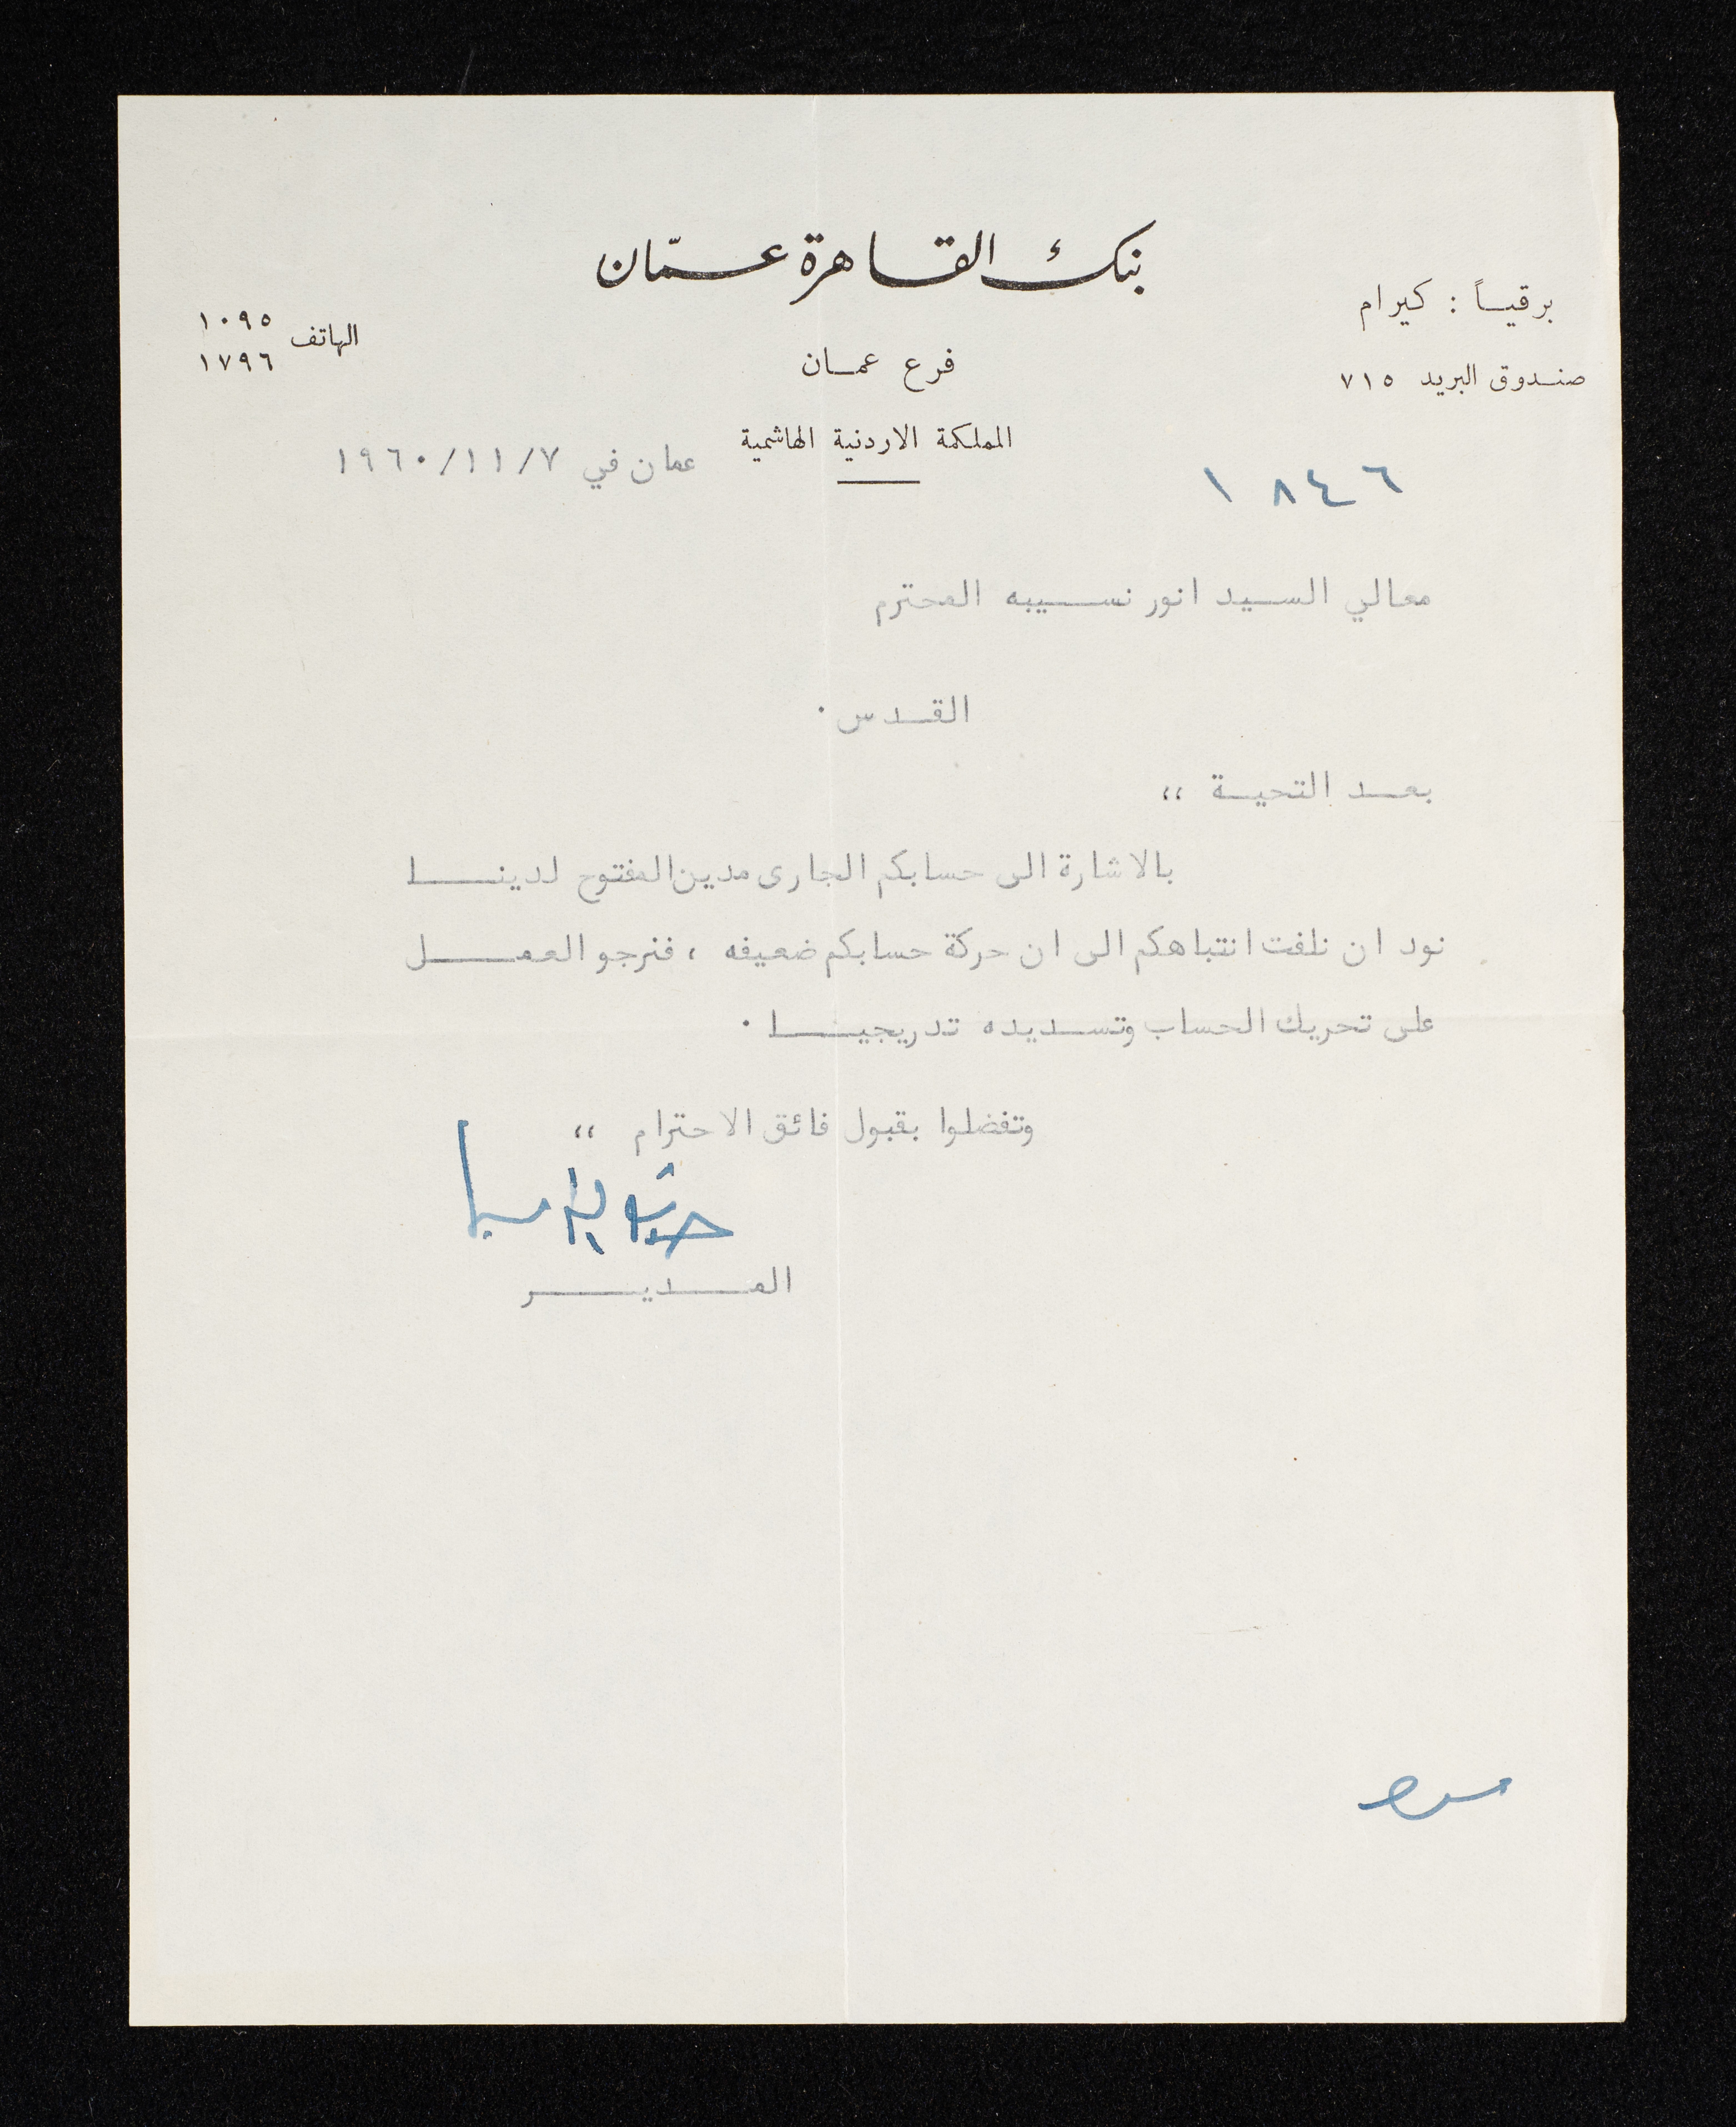 بنك القاهرة عمّان
برقياً : كيرام
الهاتف ١٠٩٥
١٧٩٦
فرع عمان
صندوق البريد ٧١٥
المملكة الاردنية الهاشمية
عمان في ١٩٦٠/١١/٧
١٨٤٦
معالي السيد انور نسيبه المحترم
القدس ٠
بعد التحية ،،
بالاشارة الى حسابكم الجارى مدين المفتوح لدينا
نود ان نلفت انتباهكم الى ان حركة حسابكم ضعيفه ، فنرجو العمل
على تحريك الحساب وتسديده تدريجيا ٠
وتفضلوا بقبول فائق الاحترام ،،
المدير